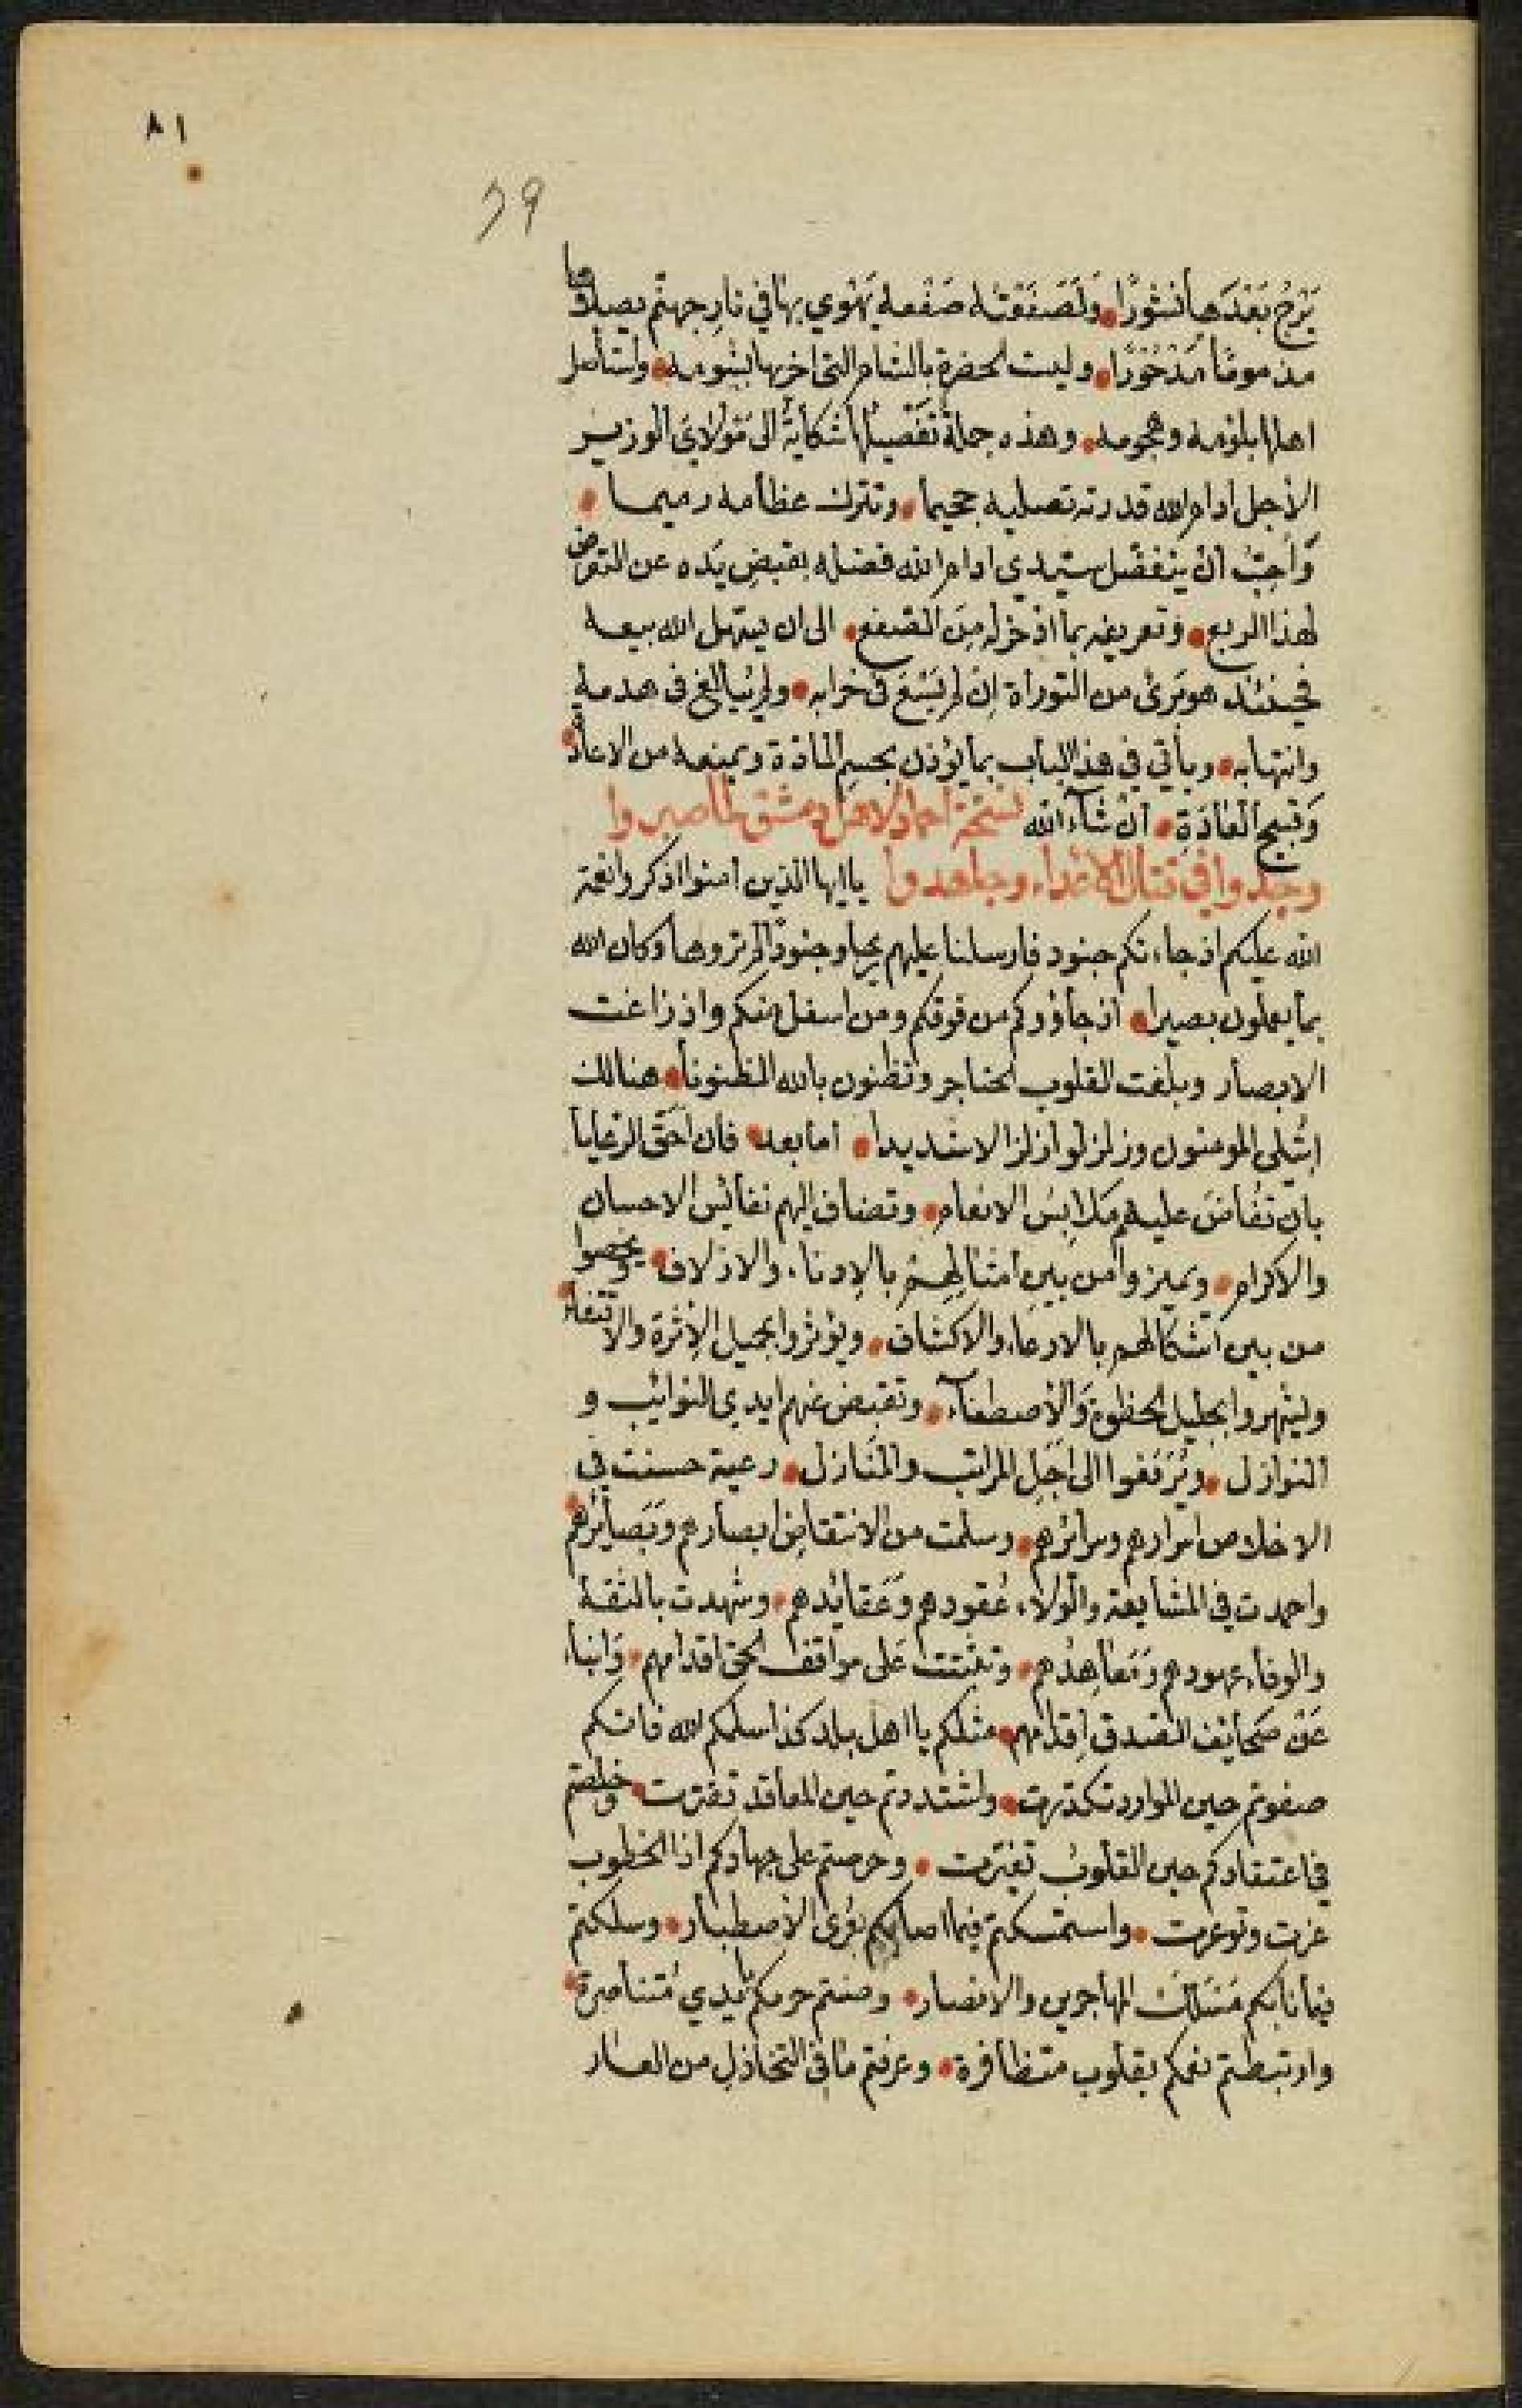 ٨١
39
يَرْجُ بَعْدَها نُشُورًا ولَصَفَعْتُه صَفْعة يَهْوي بها في نارِ جهنّم يصلاها
مذمومًا مَدْحُوْرًا وليست الحضرة بالشام التي اخربها بشومه واستأصل
اهلها بلؤمه وهجومه وهذه جملة تَفْصيلُها شكايةٌ الى مَوْلايَ الوزير
الأجل ادام الله قدرته تصليه جحيماً وتترك عظامه رميما
وَاُحِبُّ أنْ يتفضّل سيّدي ادام الله فضله بقبض يَده عن التعرض
لهذا الربع وتعريفه بما اذخر له مِنَ الصفع الى ان يسهل الله بيعه
فحينئذ هو بَرئ من التوراة إن لم يَسْعَ في خرابه ولم يُبالغ في هدمه
وانتهابه ويأتي في هذا الباب بما يؤذن بحسم المادّة ويمنعه من الاعادة
وَقبيح العَادَةِ ان شَآءَ الله نسخة احماد لاهل دمشق لما صبروا
وجدوا في قتال الاعداء وجاهدوا يا ايها الذين امنوا اذكروا نعمة
الله عليكم اذ جاءتكم جنود فارسلنا عليهم ريحا وجنودًا لم تروها وكان الله
بما يعملون بصيرا اذ جاؤوكم من فوقكم ومن اسفل منكم واذ زاغت
الابصار وبلغت القلوب الحناجر وتظنون بالله الظنونا هنالك
ابتُلي المومنون وزلزلوا زلزالا شديدا امابعد فان اَحَقَّ الرعايا
بان تُفاضَ عليهم مَلابِسُ الانعام وتضاف اليهم نفائسُ الاحسان
والاكرام ويميزوا من بين امثالهم بالادناء والازلاف ويخصوا
من بين اشكالهم بالارعاء والاكناف ويؤثروا بجميل الأثرة والاتقاء
وليشهروا بجليل الحظوة وَالأصطفآء وتقبض عنهم ايدي النوائب و
النوازل ويُرْفَعوا الى اَجَلِ المراتب والمنازل رعية حسنت في
الاخلاص اسرارهم وسرائرهم وسلمت من الانتقاض ابصارهم وَبَصائرهم
واحمدت في المشايعة والولاء عُقودهم وَعَقايدهم وشهدت بالثقة
والوفاء عهودهم ومَعاهدهم وتثبتت على مواقف الحق اقدامهم وَانباء
عَنْ صَحائف الصدق اقلامهم مثلكم يا اهل بلد كذا سلمكم الله فانكم
صفوتم حين الموارد تكدرت واشتددتم حين المعاقد تفترت وخلصتم
في اعتقادكم حين القلوبُ تغيّرت وحرصتم على جهادكم اذا الخطوب
عزت وتوعّرت واستمسكتم فيما اصابكم بعُرى الأصطبار وسلكتم
فيما نابكم مَسَالكَ المهاجرين والانصار وصنتم حرمكم بأيدي مُتناصرة
وارتبطتم نعمكم بقلوب متظافرة وعرفتم ما في التخاذل من العار